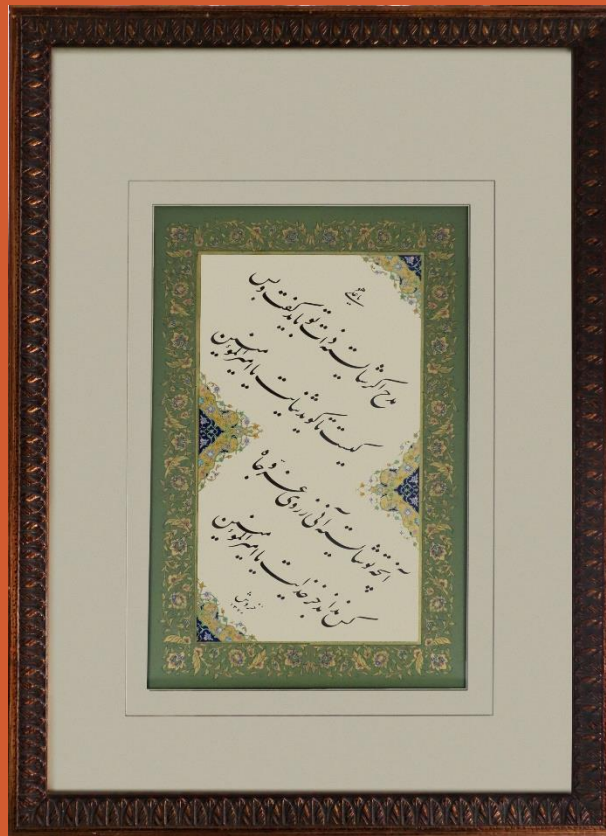 یا علی
مدح اگر شایسته ذات تو باید گفت و بس
کیست تا گوید ثنایت یا امیرالمؤمنین
آنچه تو شایسته آنی از روی عز و جاه
کس نداند جز خدایت یا امیرالمؤمنین